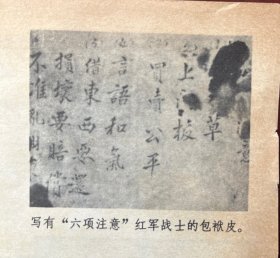 意
草
上门板
買賣公平
言語和氣
借東西要還
損壞要賠償
不准亂
写有“六项注意”红军战士的包袱皮。